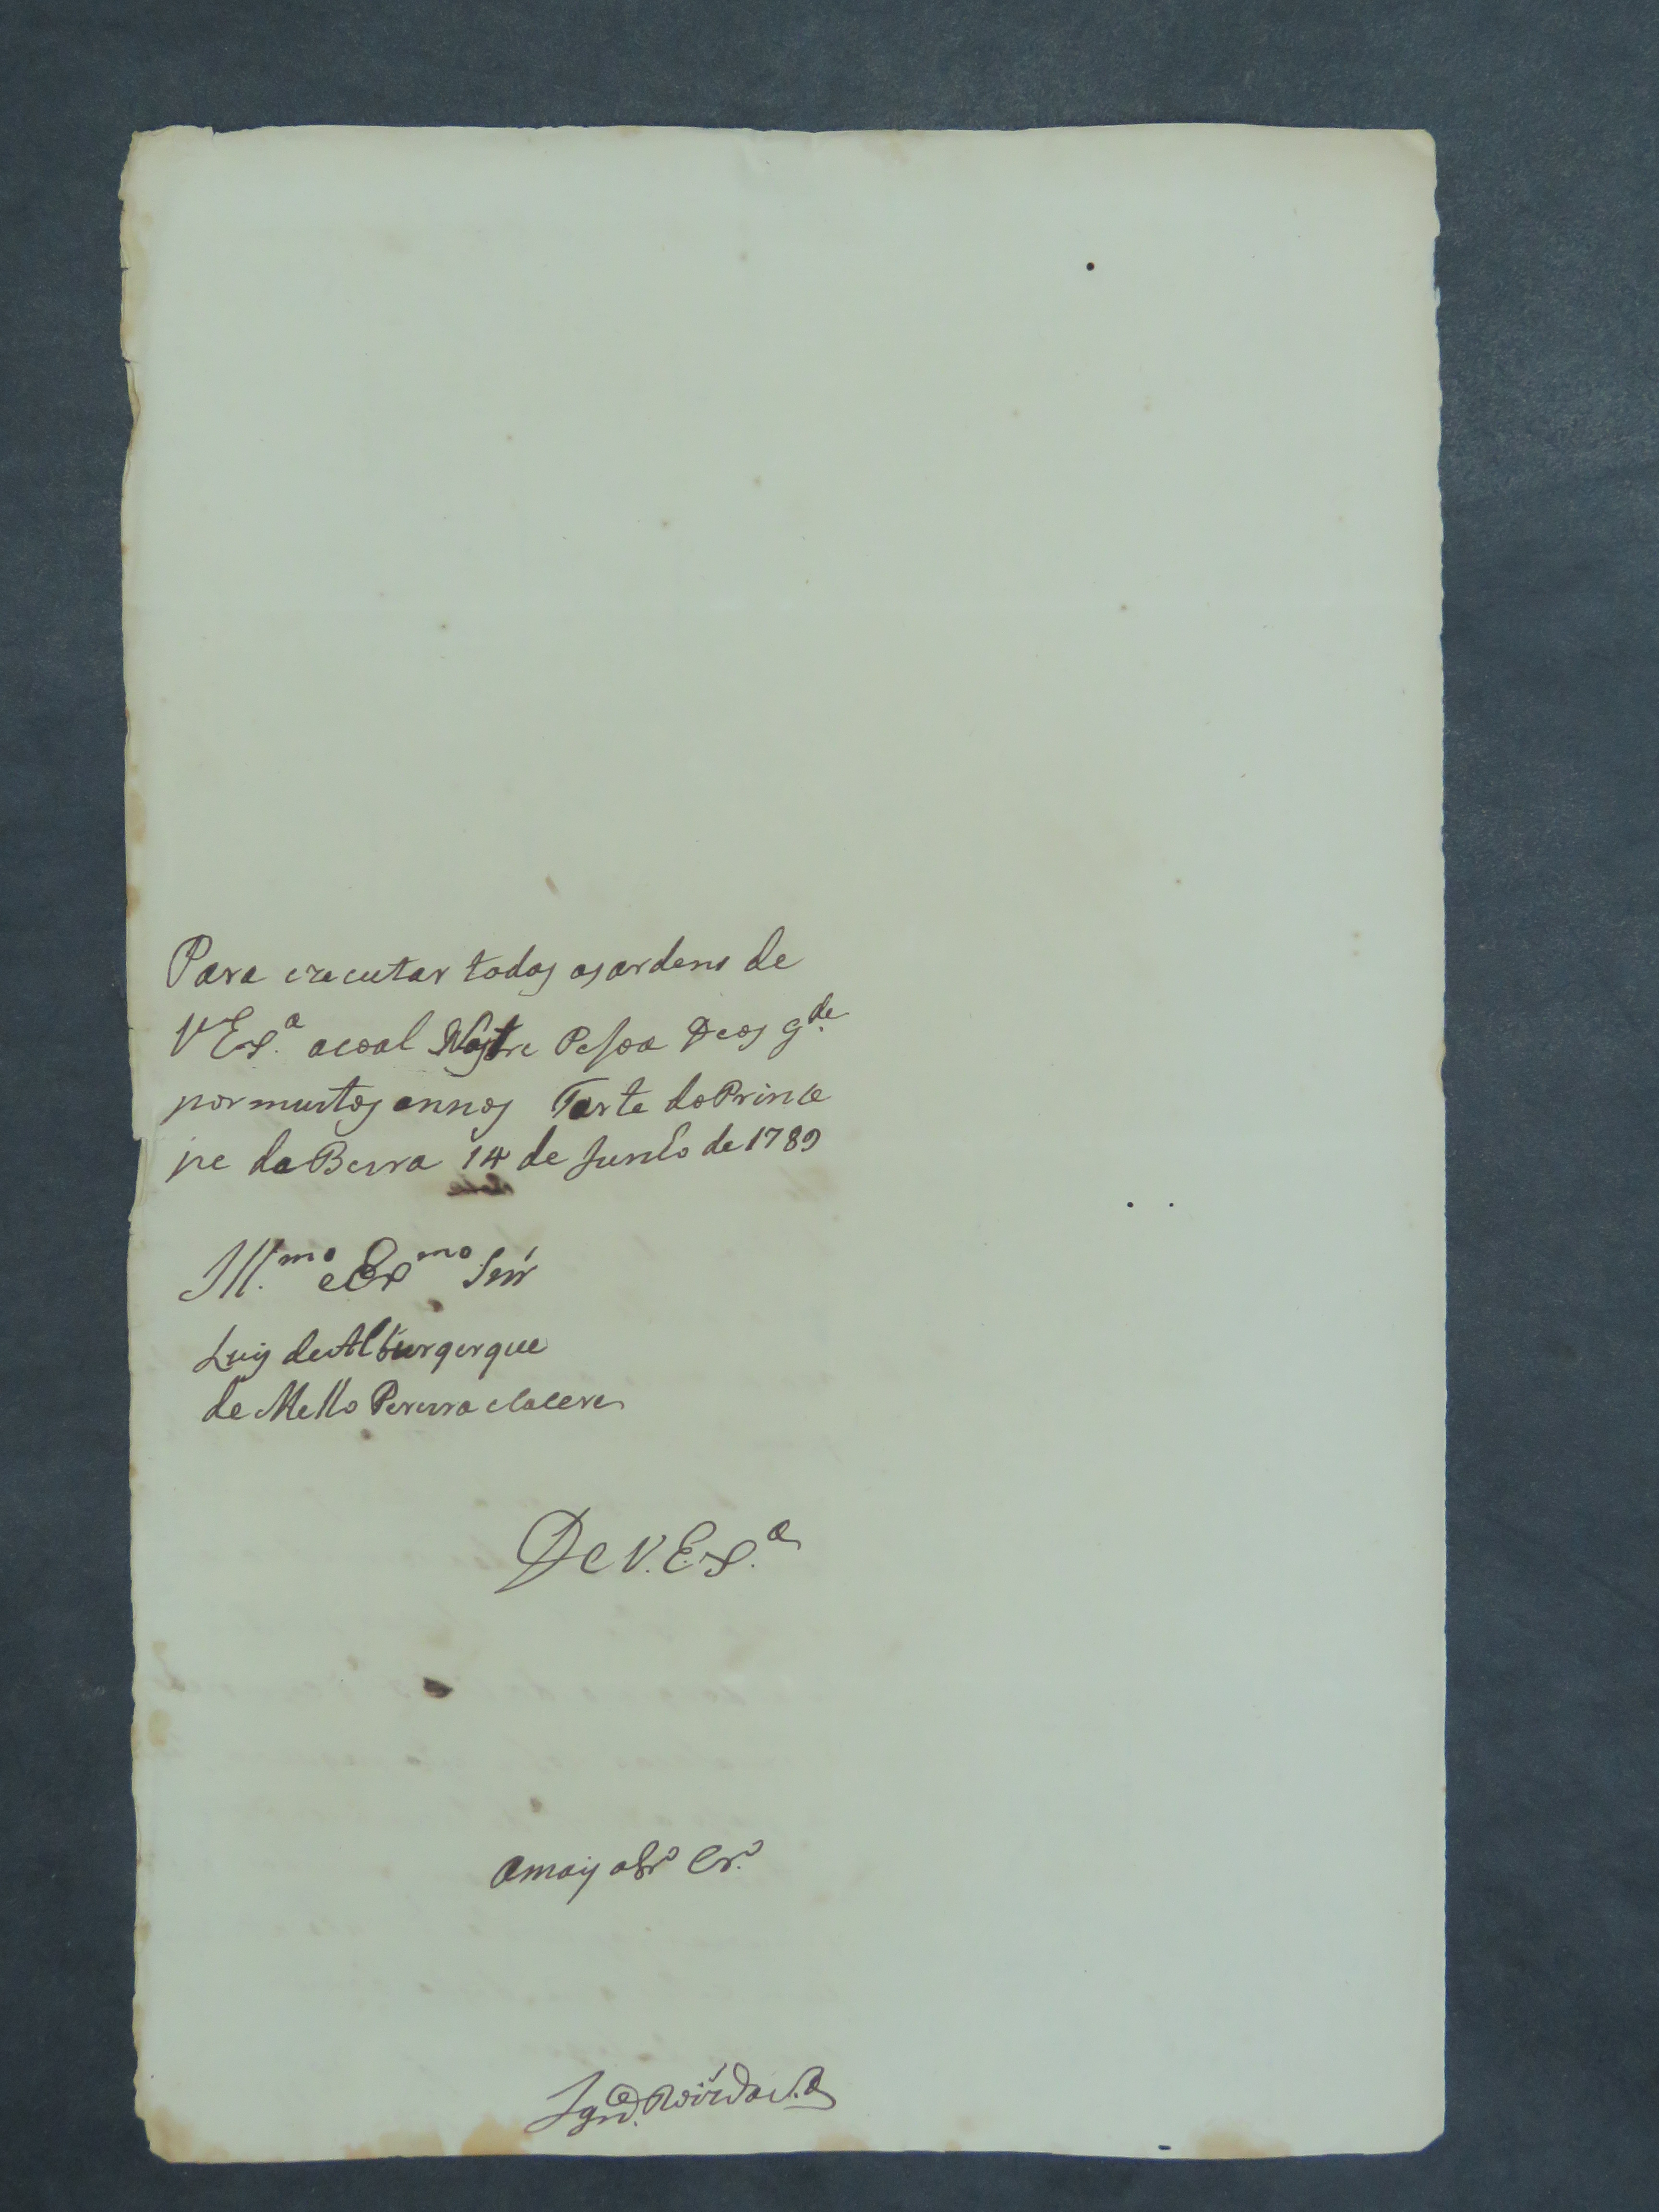 Para execcutar todas as ordens de
V Ex.ª acoal Nostre Pessoa Deos g.de
por muitos annos Forte do Princi
pe da Beira 14 de Junho de 1789
Ill.mo e Ex.mo Snr
Luis de Alburqerque
de Mello Pereira e Caceres
De V. Ex.ª
O mais obr.º Cr.º